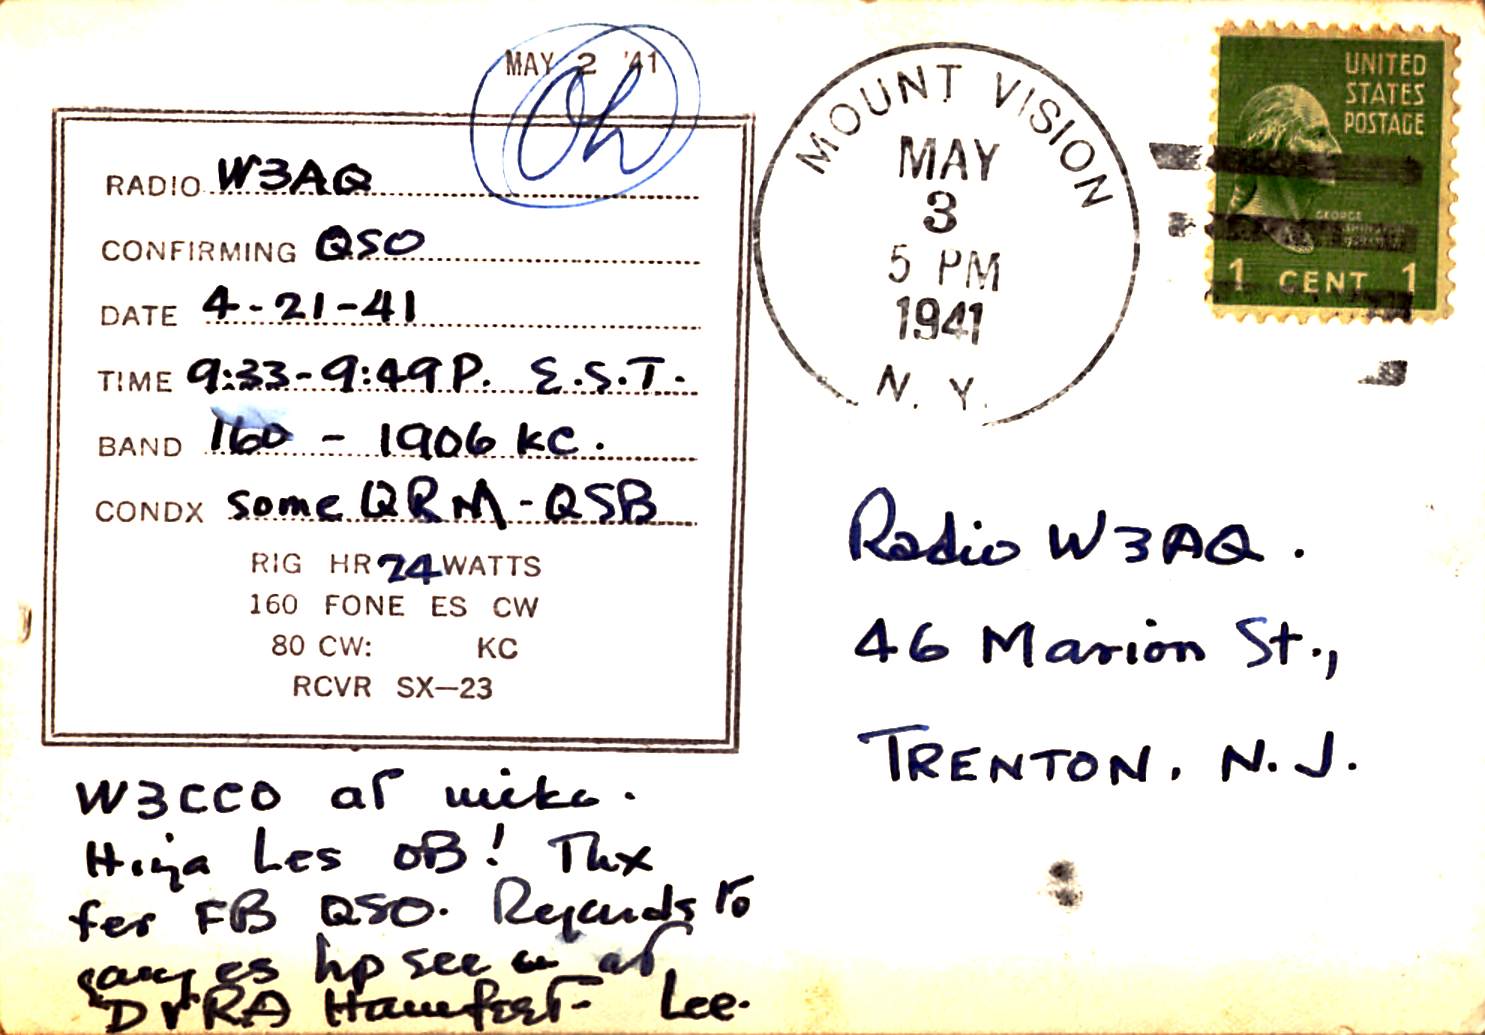 MAY 2 '41
Oh
RADIO W3AQ
CONFIRMING QSO
DATE 4-21-41
TIME 9:33-9:49 P. E.S.T.
BAND 160 - 1906 KC.
CONDX some QRM-QSB
RIG HR 24 WATTS
160 FONE ES CW
80 CW: KC
RCVR SX-23
W3CCO at mike.
Hiya Les OB! Thx
fer FB QSO. Regards to
gang es hp see u at
DVRA Hamfest- Lee.
MOUNT VISION
MAY
3
5 PM
1941
N. Y.
UNITED
STATES
POSTAGE
GEORGE
1 CENT 1
Radio W3AQ.
46 Marion St.,
TRENTON, N.J.